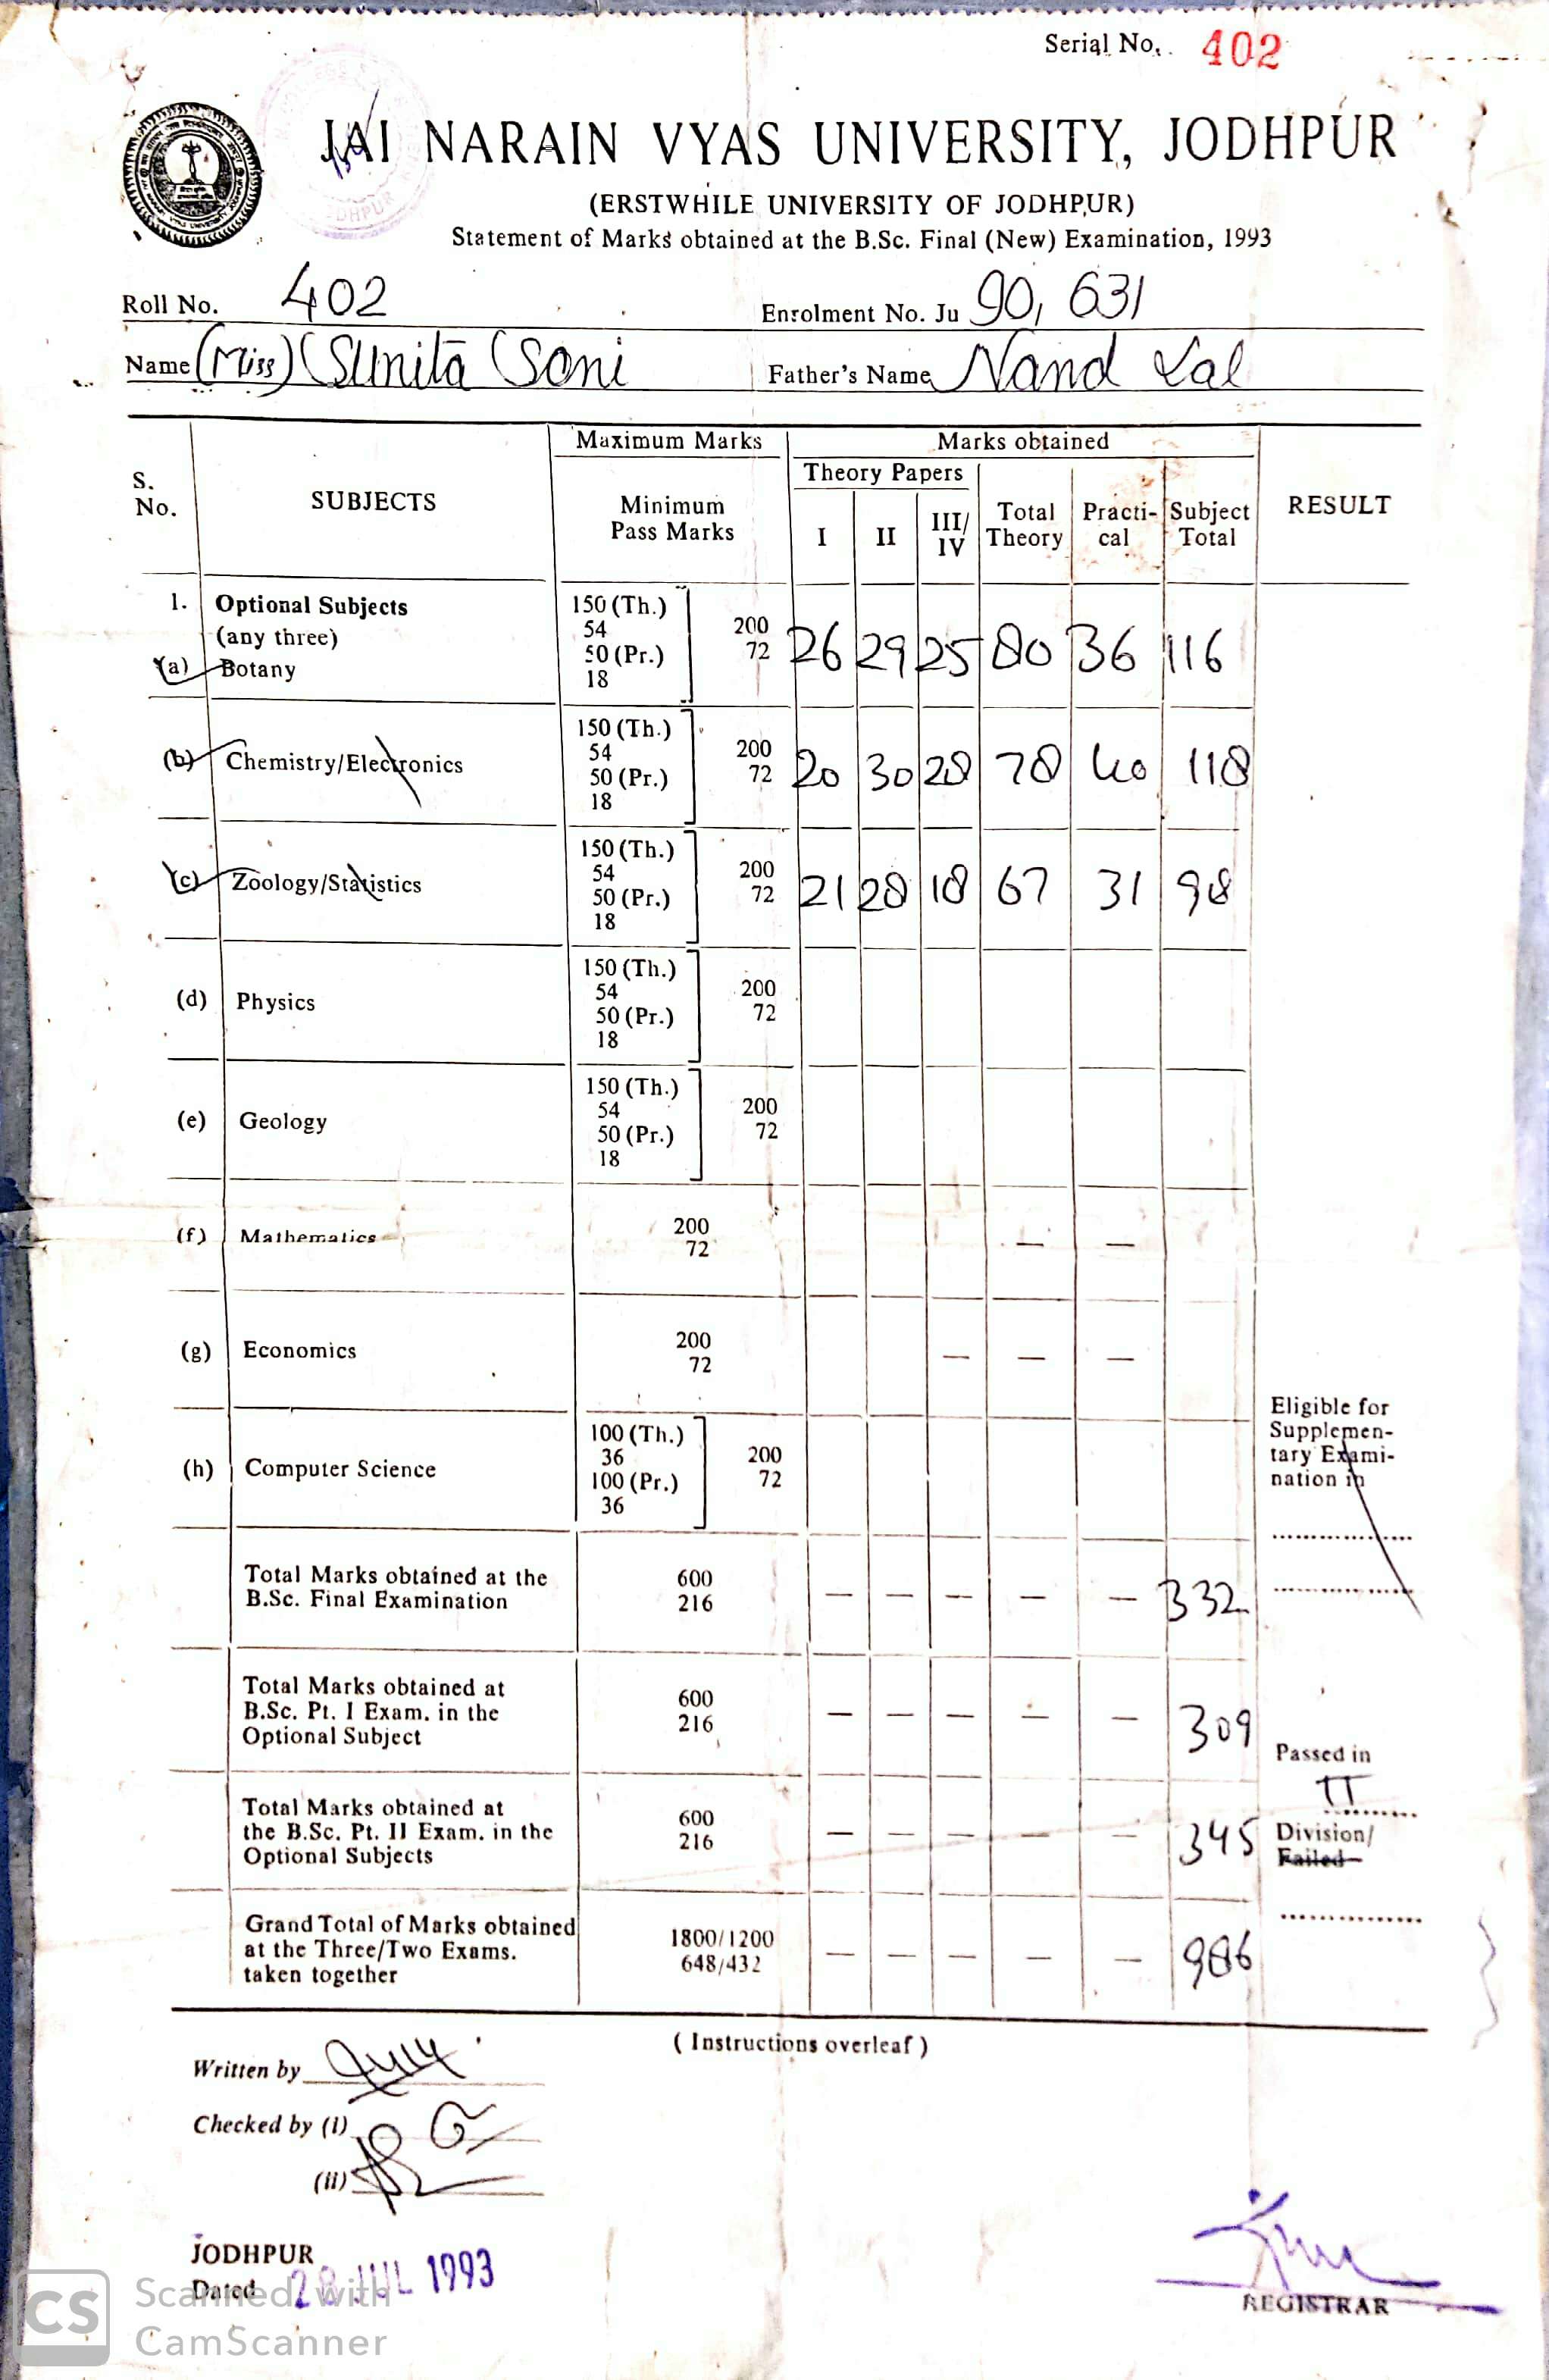 Serial No. 402
JAI NARAIN VYAS UNIVERSITY, JODHPUR
(ERSTWHILE UNIVERSITY OF JODHPUR)
Statement of Marks obtained at the B.Sc. Final (New) Examination, 1993
Roll No. 402 Enrolment No. Ju 90, 631
Name (Miss) Sunita Soni Father's Name Nand Lal
Maximum Marks Marks obtained
S. No. SUBJECTS Minimum Pass Marks Theory Papers I II III/IV Total Theory Practi-cal Subject Total RESULT
1. Optional Subjects 150 (Th.)
(any three) 54 200
(a) Botany 50 (Pr.) 72 26 29 25 80 36 116
18
150 (Th.)
54 200
(b) Chemistry/Electronics 50 (Pr.) 72 20 30 28 78 40 118
18
150 (Th.)
54 200
(c) Zoology/Statistics 50 (Pr.) 72 21 28 18 67 31 98
18
150 (Th.)
54 200
(d) Physics 50 (Pr.) 72
18
150 (Th.)
54 200
(e) Geology 50 (Pr.) 72
18
(f) Mathematics 200 — —
72
(g) Economics 200 — — —
72
100 (Th.)
36 200
(h) Computer Science 100 (Pr.) 72
36
Eligible for
Supplemen-
tary Exami-
nation in
Total Marks obtained at the 600
B.Sc. Final Examination 216 — — — — — 332
Total Marks obtained at
B.Sc. Pt. I Exam. in the 600
Optional Subject 216 — — — — — 309
Passed in
II
Division/
Failed
Total Marks obtained at
the B.Sc. Pt. II Exam. in the 600
Optional Subjects 216 — — — — — 345
Grand Total of Marks obtained 1800/1200
at the Three/Two Exams. 648/432 — — — — — 986
taken together
( Instructions overleaf )
Written by
Checked by (i)
(ii)
JODHPUR
Dated 28 JUL 1993
REGISTRAR
CS Scanned with
CamScanner